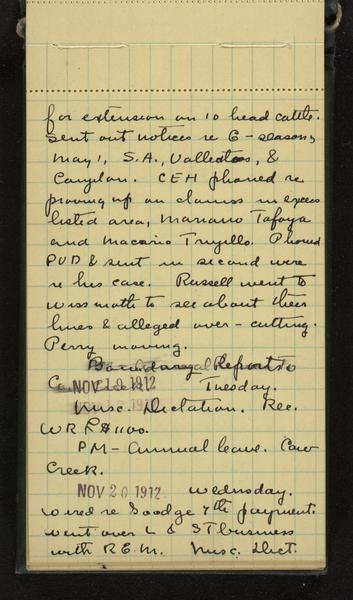 for extension on 10 head cattle.
Sent out notices re G-season,
May 1, S.A., Vallecitos, &
Canjilon. CEH phoned re
proving up on claims in excess
listed area, Mariano Tafoya
and Macario Trujillo. Phoned
PVD & sent in second wire
re his case. Russell went to
to see about their
lines & alleged over-cutting.
Perry moving.
Boundary Reports to
NOV 19 1912 Tuesday.
Misc. Dictation. Rec.
WR $1100.
PM - Annual leave. Cow
Creek.
NOV 20 1912 Wednesday.
Wired re 7th payment.
Went over L & ST business
with R.E.M. Misc. Dict.